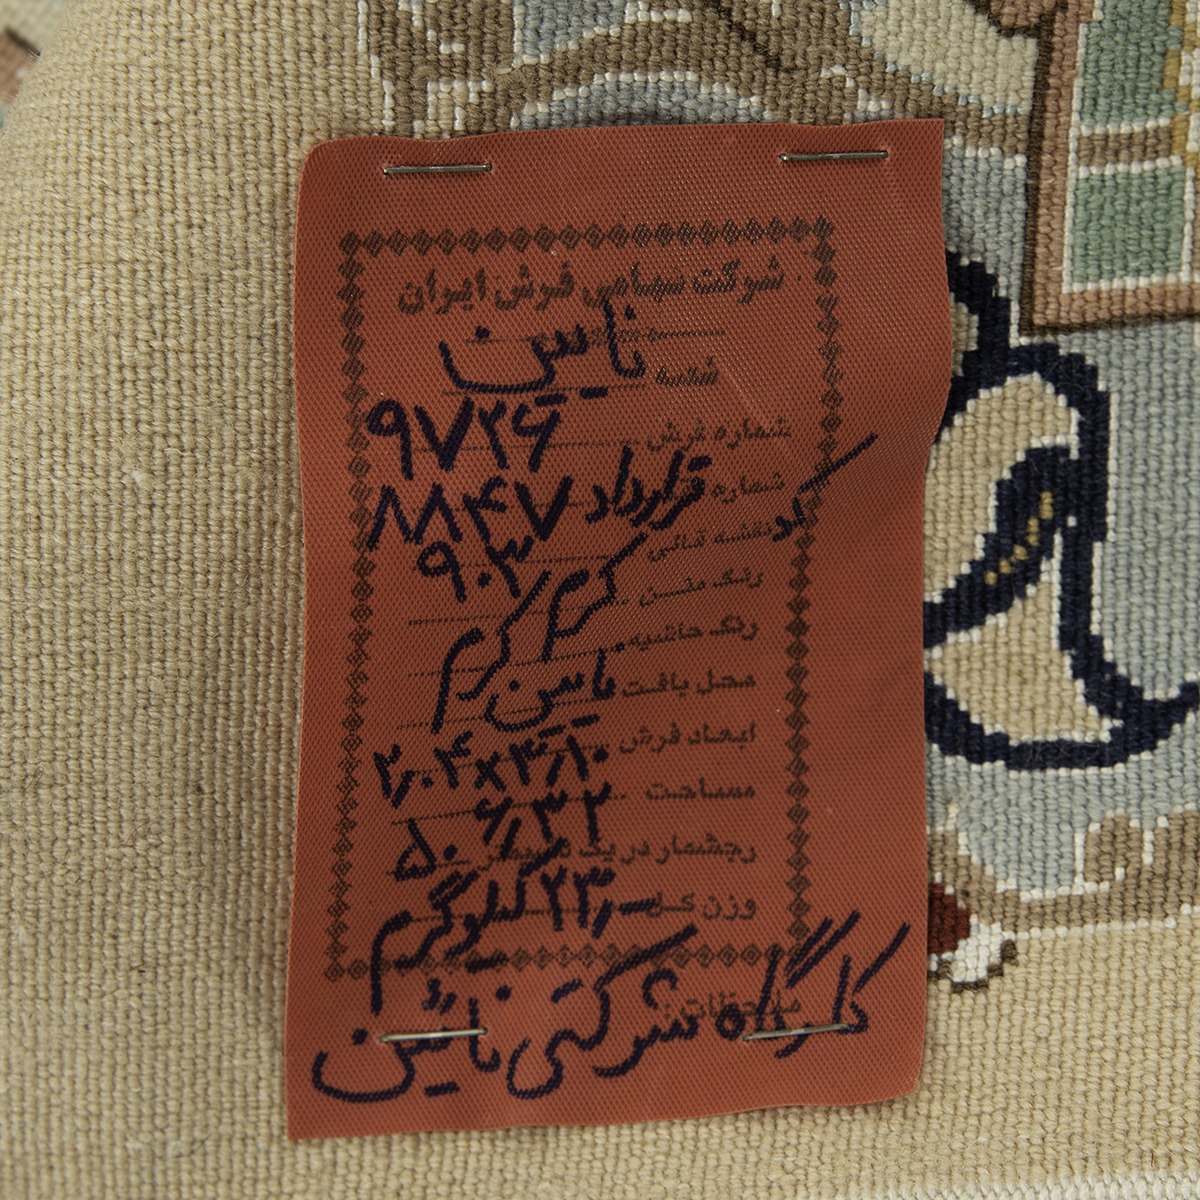 شرکت سهامی فرش ایران
شعبه نایین
شماره فرش ۹۷۲۶
شماره قرارداد ۸۸۴۷
کد نقشه قالی ۹۰۳
رنگ متن کرم
رنگ حاشیه کرم
محل بافت نایین
ابعاد فرش ۲٫۰۴×۳٫۱۰
مساحت ۶٫۳۲
رجشمار در یک ۵۰
وزن کل ۲۳٫ــ کیلوگرم
ملاحظات :
کارگاه شرکتی نائین